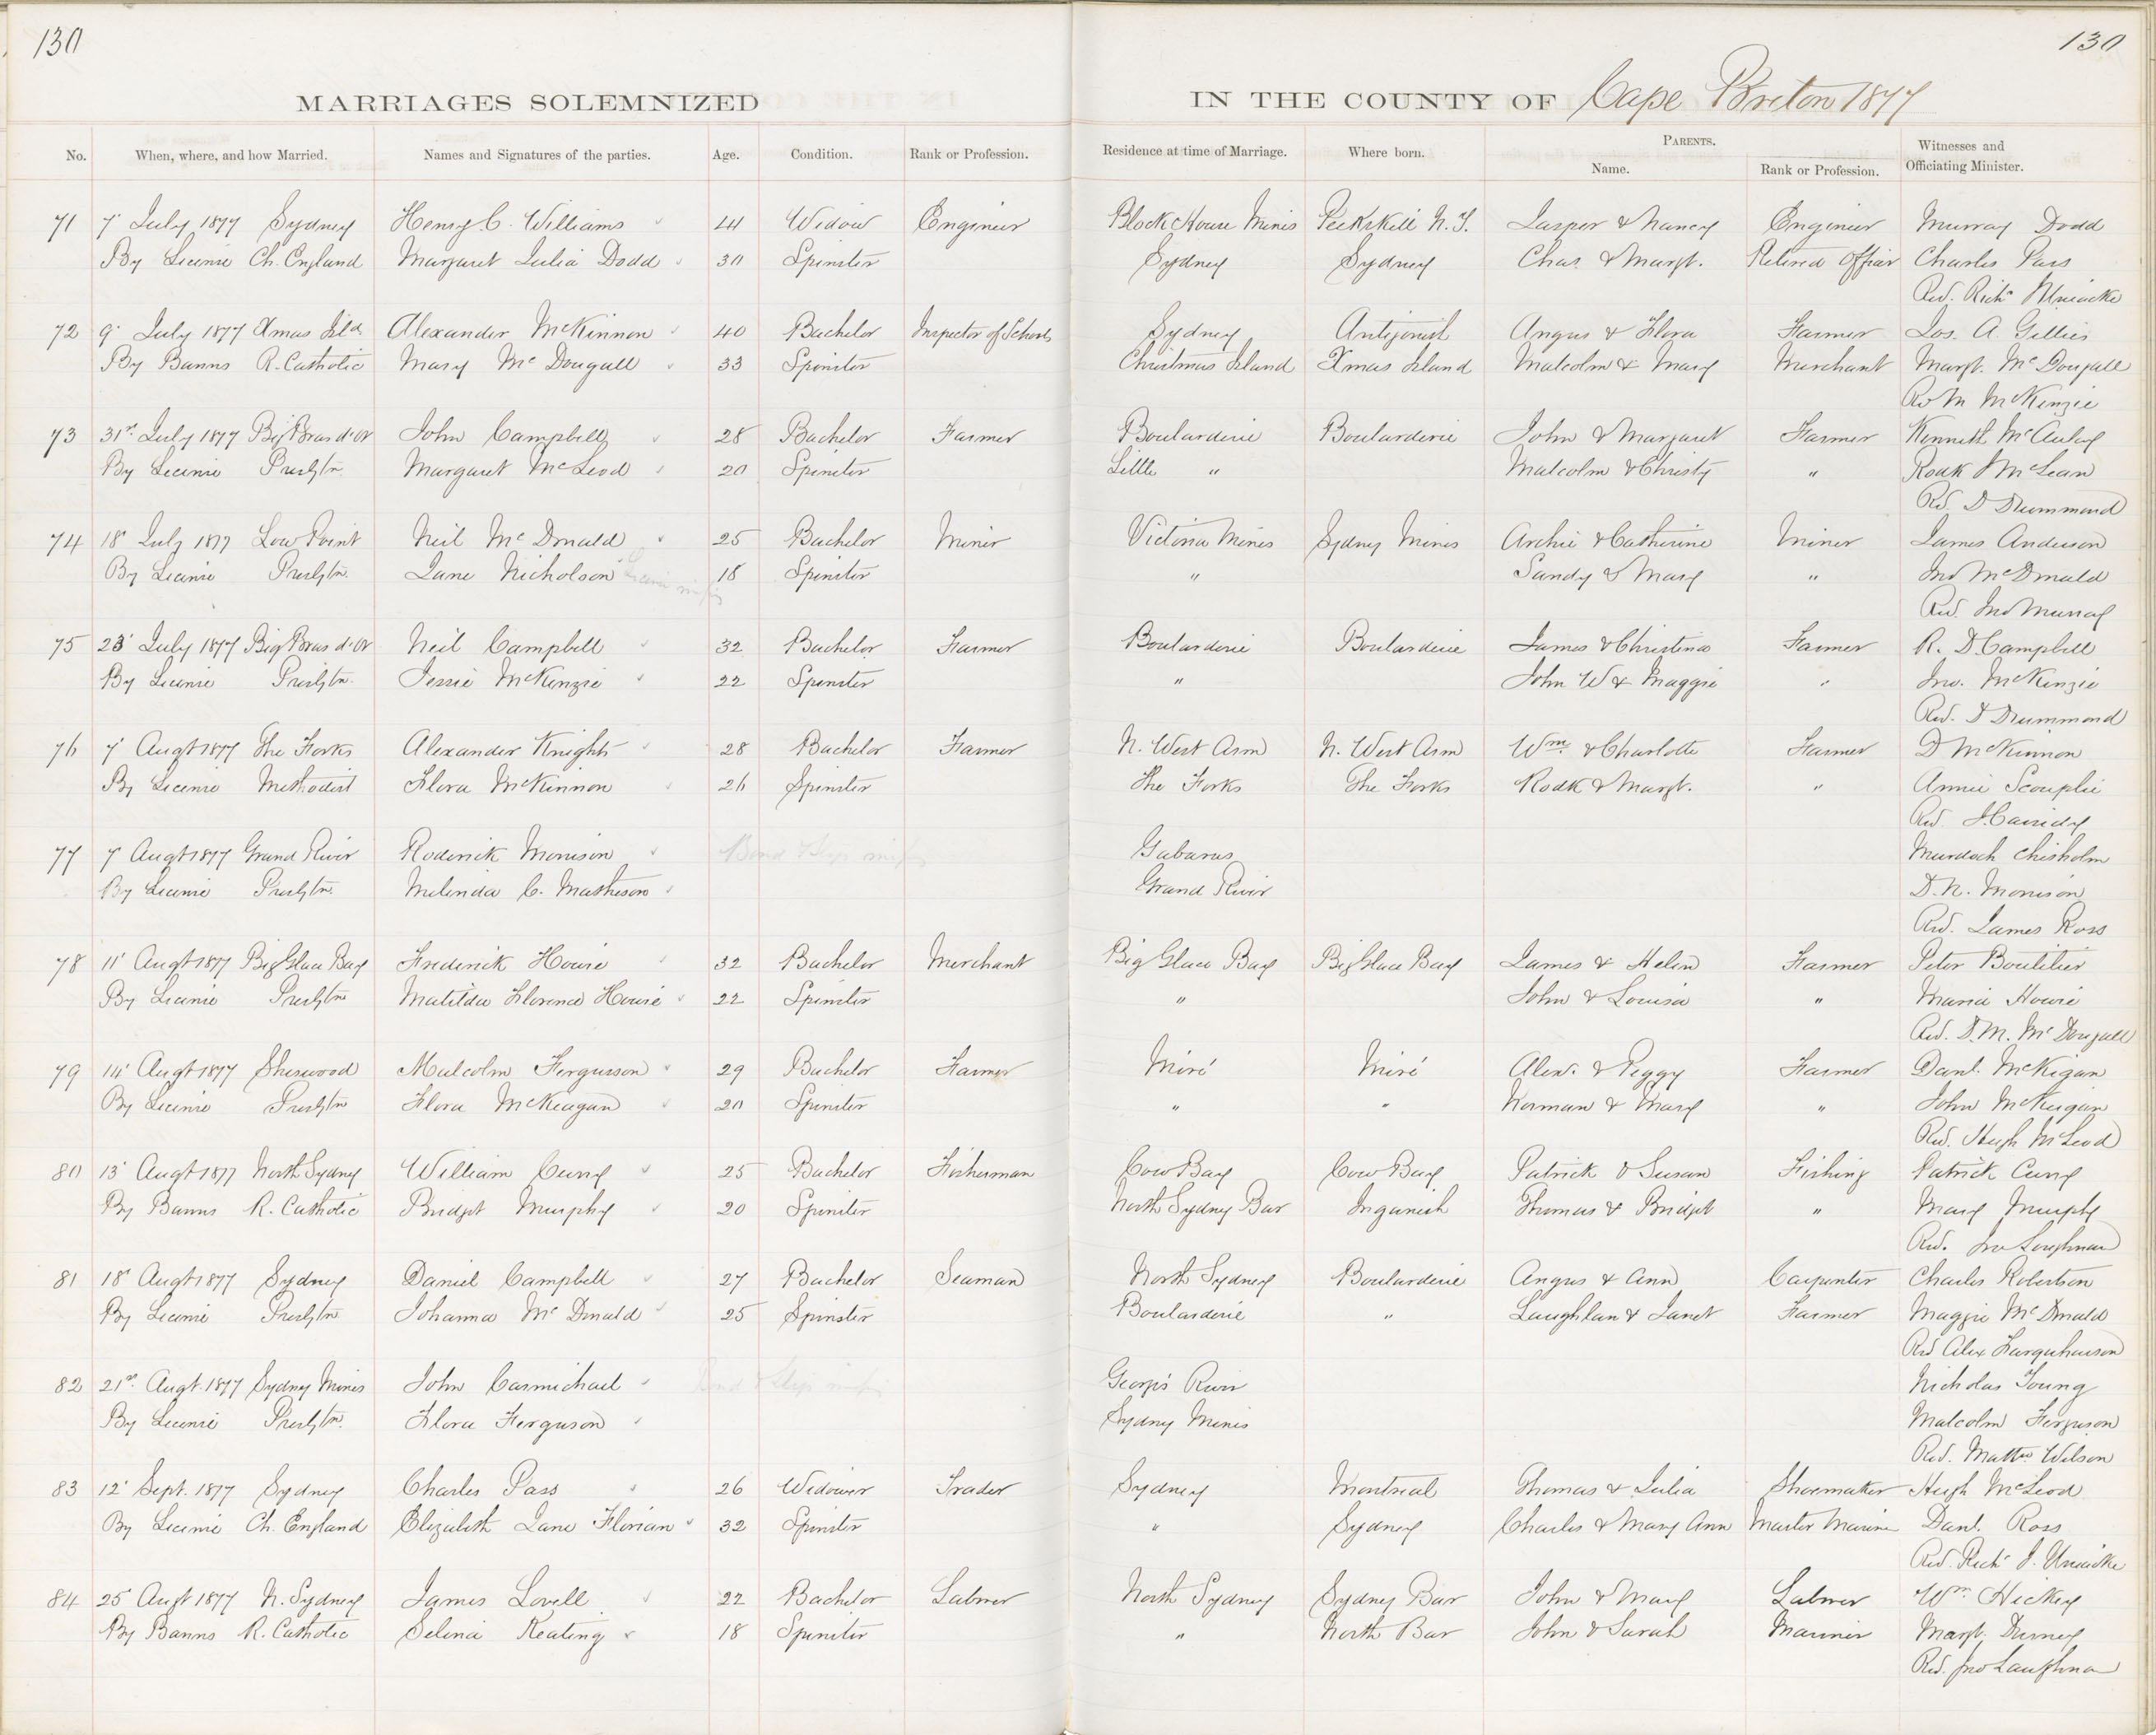 130
130
MARRIAGES SOLEMNIZED IN THE COUNTY OF Cape Breton 1877
No. When, where, and how Married. Names and Signatures of the parties. Age. Condition. Rank or Profession. Residence at time of Marriage. Where born. PARENTS. Name. Rank or Profession. Witnesses and Officiating Minister.
71 7' July 1877 Sydney Henry C. Williams 44 Widow Engineer Block House Mines Peekskill N.Y. Jasper & Nancy Engineer Murray Dodd
By License Ch. England Margaret Julia Dodd 30 Spinster Sydney Sydney Chas. & Margt. Retired Officer Charles Pass
Rev. Richd Uniacke
72 9' July 1877 Xmas Ild Alexander McKinnon 40 Bachelor Inspector of Schools Sydney Antigonish Angus & Flora Farmer Jos. A. Gillies
By Banns R. Catholic Mary McDougall 33 Spinster Christmas Island Xmas Island Malcolm & Mary Merchant Margt. McDougall
Rev M McKenzie
73 31st July 1877 Big Bras d'or John Campbell 28 Bachelor Farmer Boularderie Boularderie John & Margaret Farmer Kenneth McAulay
By License Presbtn. Margaret McLeod 20 Spinster Little " Malcolm & Christy " Rodk McLean
Rev. D Drummond
74 18' July 1877 Low Point Neil McDonald 25 Bachelor Miner Victoria Mines Sydney Mines Archie & Catherine Miner James Anderson
By License Presbtn. Jane Nicholson 18 Spinster " Sandy & Mary " Jno McDonald
Rev. Jno Murray
75 23' July 1877 Big Bras d'or Neil Campbell 32 Bachelor Farmer Boularderie Boularderie James & Christina Farmer R. D. Campbell
By License Presbtn. Jessie McKenzie 22 Spinster " John W & Maggie " Jno. McKenzie
Rev. D Drummond
76 7' Augt 1877 The Forks Alexander Knight 28 Bachelor Farmer N. West Arm N. West Arm Wm. & Charlotte Farmer D McKinnon
By License Methodist Flora McKinnon 26 Spinster The Forks The Forks Rodk & Margt. " Annie
Rev. J. Cassidy
77 7' Augt 1877 Grand River Roderick Morrison Bond & Slip missing Gabarus Murdoch Chisholm
By License Presbtn. Melinda C. Matheson Grand River D. N. Morrison
Rev. James Ross
78 11' Augt 1877 Big Glace Bay Frederick Howie 32 Bachelor Merchant Big Glace Bay Big Glace Bay James & Helen Farmer Peter Boutilier
By License Presbtn Matilda Florence Howie 22 Spinster " John & Louisa " Maria Howie
Rev. D. M. McDougall
79 14' Augt 1877 Sherwood Malcolm Fergusson 29 Bachelor Farmer Miré Miré Alexr. & Peggy Farmer Danl. McKigan
By License Presbtn Flora McKeagan 20 Spinster " " Norman & Mary " John McKeigan
Rev. Hugh McLeod
80 13' Augt 1877 North Sydney William Curry 25 Bachelor Fisherman Cow Bay Cow Bay Patrick & Susan Fishing Patrick Curry
By Banns R. Catholic Bridget Murphy 20 Spinster North Sydney Bar Inganish Thomas & Bridget " Mary Murphy
Rev. Jno Loughnan
81 18' Augt 1877 Sydney Daniel Campbell 27 Bachelor Seaman North Sydney Boularderie Angus & Ann Carpenter Charles Robertson
By License Presbtn Johanna McDonald 25 Spinster Boularderie " Laughlan & Janet Farmer Maggie McDonald
Rev Alex Farquharson
82 21st. Augt. 1877 Sydney Mines John Carmichael Bond & Slip missing Georges River Nicholas Young
By License Presbtn. Flora Ferguson Sydney Mines Malcolm Ferguson
Rev. Matthw Wilson
83 12' Sept. 1877 Sydney Charles Pass 26 Widower Trader Sydney Montreal Thomas & Julia Shoemaker Hugh McLeod
By License Ch. England Elizabeth Jane Florian 32 Spinster " Sydney Charles & Mary Ann Master Mariner Danl. Ross
Rev. Richd J. Uniacke
84 25 Augt 1877 N. Sydney James Lovell 22 Bachelor Labrer North Sydney Sydney Bar John & Mary Labrer Wm Hickey
By Banns R. Catholic Selina Keating 18 Spinster " North Bar John & Sarah Mariner Margt.
Rev. Jno Laughnan